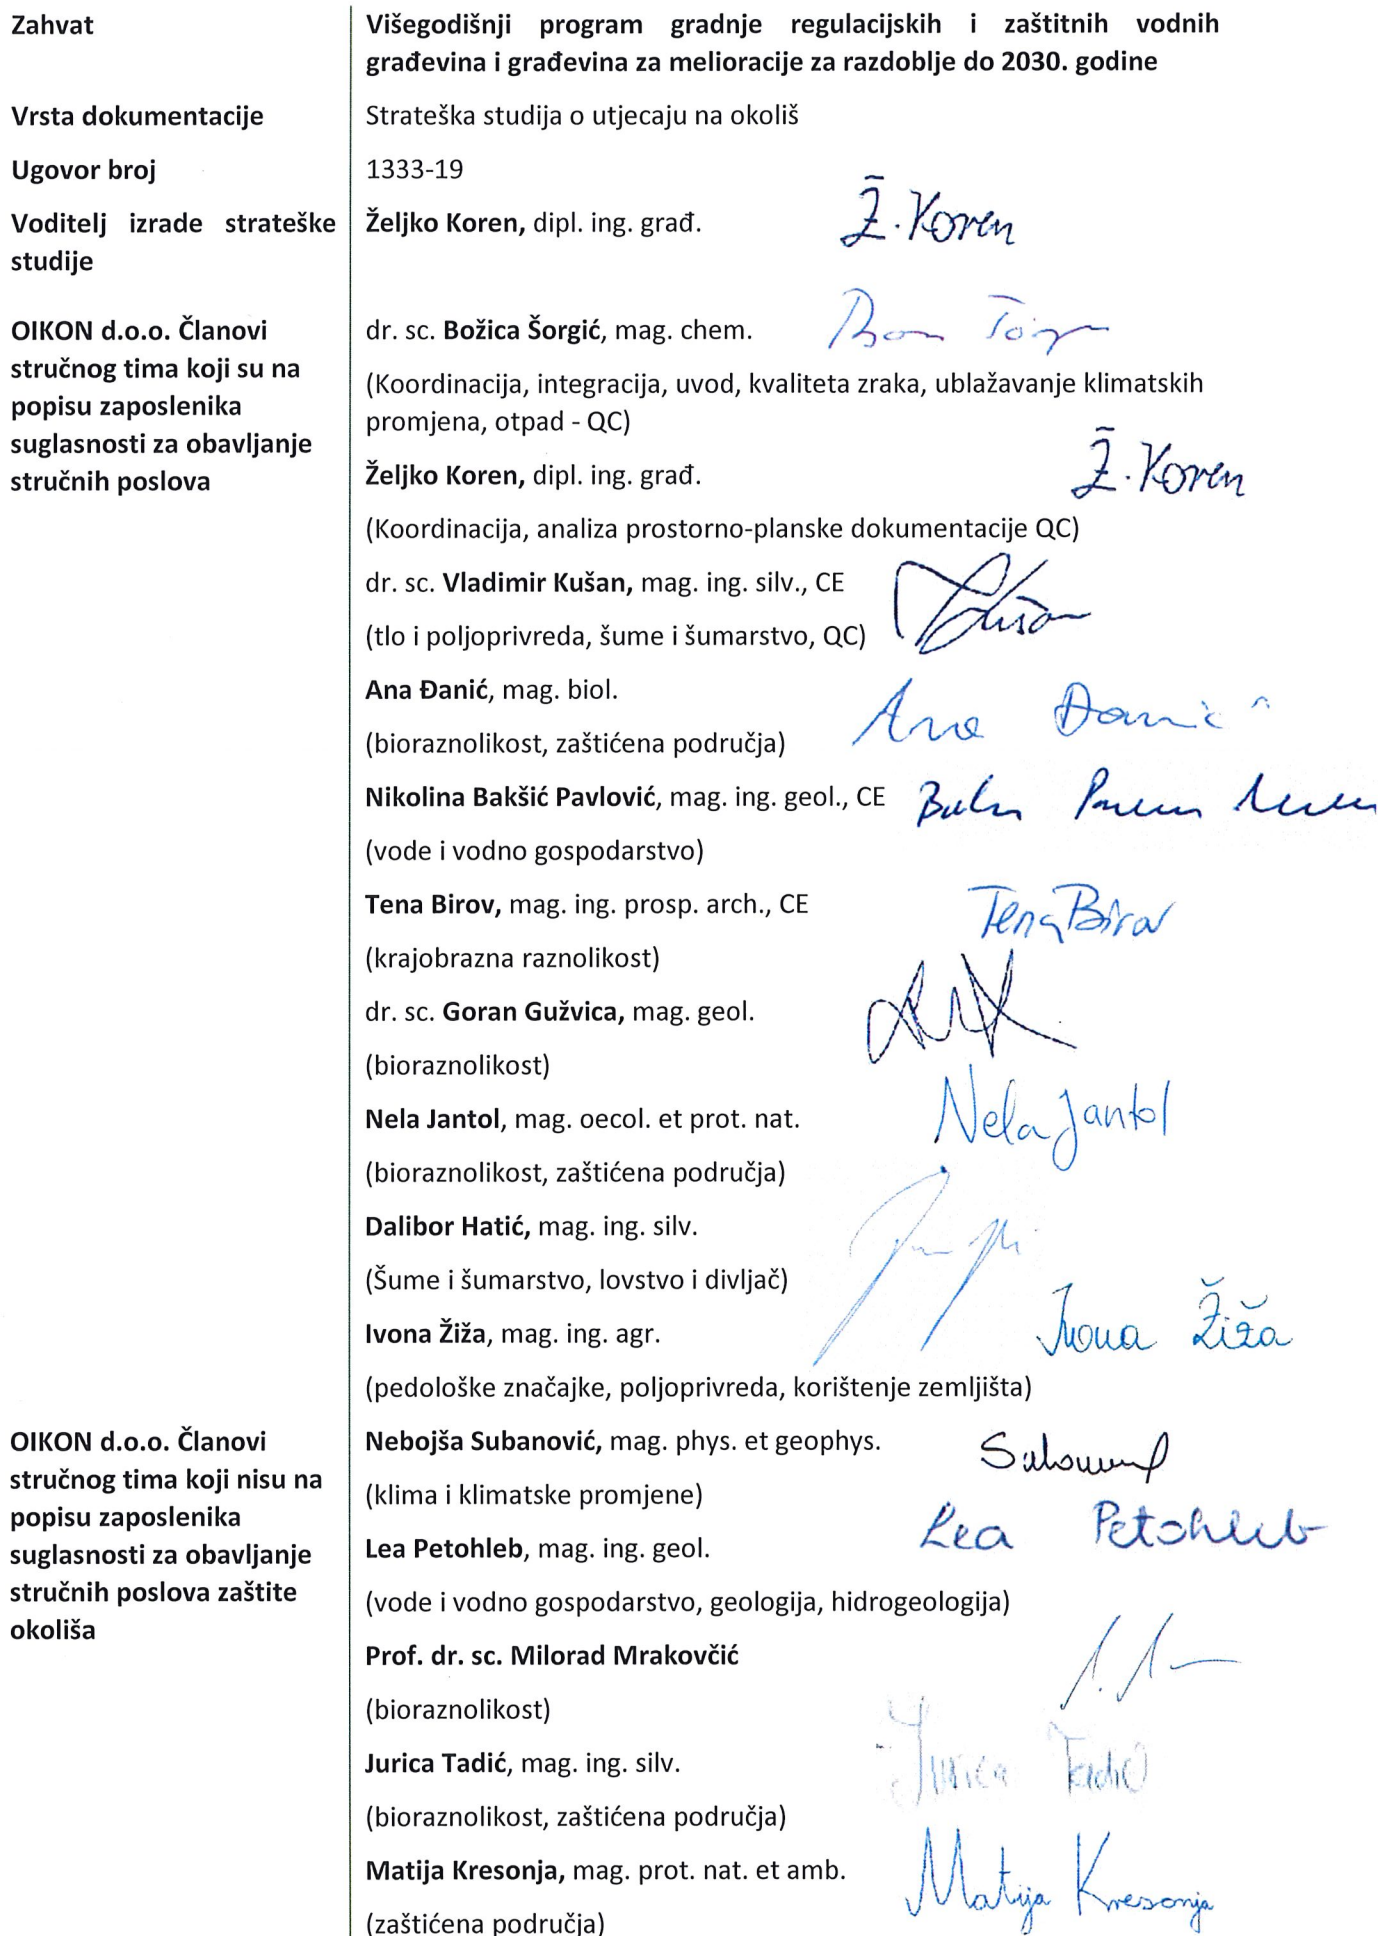 Zahvat
Višegodišnji program gradnje regulacijskih i zaštitnih vodnih
građevina i građevina za melioracije za razdoblje do 2030. godine
Vrsta dokumentacije
Strateška studija o utjecaju na okoliš
Ugovor broj
1333-19
Voditelj izrade strateške
studije
Željko Koren, dipl. ing. građ.
Ž. Koren
OIKON d.o.o. Članovi
stručnog tima koji su na
popisu zaposlenika
suglasnosti za obavljanje
stručnih poslova
dr. sc. Božica Šorgić, mag. chem.
(Koordinacija, integracija, uvod, kvaliteta zraka, ublažavanje klimatskih
promjena, otpad - QC)
Željko Koren, dipl. ing. građ.
Ž. Koren
(Koordinacija, analiza prostorno-planske dokumentacije QC)
dr. sc. Vladimir Kušan, mag. ing. silv., CE
(tlo i poljoprivreda, šume i šumarstvo, QC)
Ana Đanić, mag. biol.
Ana Đanić
(bioraznolikost, zaštićena područja)
Nikolina Bakšić Pavlović, mag. ing. geol., CE
(vode i vodno gospodarstvo)
Tena Birov, mag. ing. prosp. arch., CE
Tena Birov
(krajobrazna raznolikost)
dr. sc. Goran Gužvica, mag. geol.
(bioraznolikost)
Nela Jantol, mag. oecol. et prot. nat.
Nela Jantol
(bioraznolikost, zaštićena područja)
Dalibor Hatić, mag. ing. silv.
(Šume i šumarstvo, lovstvo i divljač)
Ivona Žiža, mag. ing. agr.
Ivona Žiža
(pedološke značajke, poljoprivreda, korištenje zemljišta)
OIKON d.o.o. Članovi
stručnog tima koji nisu na
popisu zaposlenika
suglasnosti za obavljanje
stručnih poslova zaštite
okoliša
Nebojša Subanović, mag. phys. et geophys.
(klima i klimatske promjene)
Lea Petohleb, mag. ing. geol.
Lea Petohleb
(vode i vodno gospodarstvo, geologija, hidrogeologija)
Prof. dr. sc. Milorad Mrakovčić
(bioraznolikost)
Jurica Tadić, mag. ing. silv.
Jurica Tadić
(bioraznolikost, zaštićena područja)
Matija Kresonja, mag. prot. nat. et amb.
Matija Kresonja
(zaštićena područja)